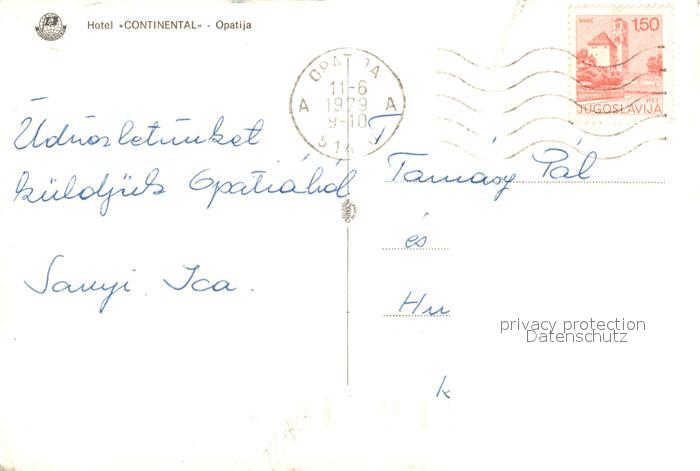 Hotel «CONTINENTAL» - Opatija
BIHIĆ
1,50
PTT
JUGOSLAVIJA
OPATIJA
11-6
A 1979 A
9-10
514
Üdvözletünket
küldjük Opatiából
Sanyi. Ica.
T
Tamásy Pál
és
Hu
k
privacy protection
Datenschutz